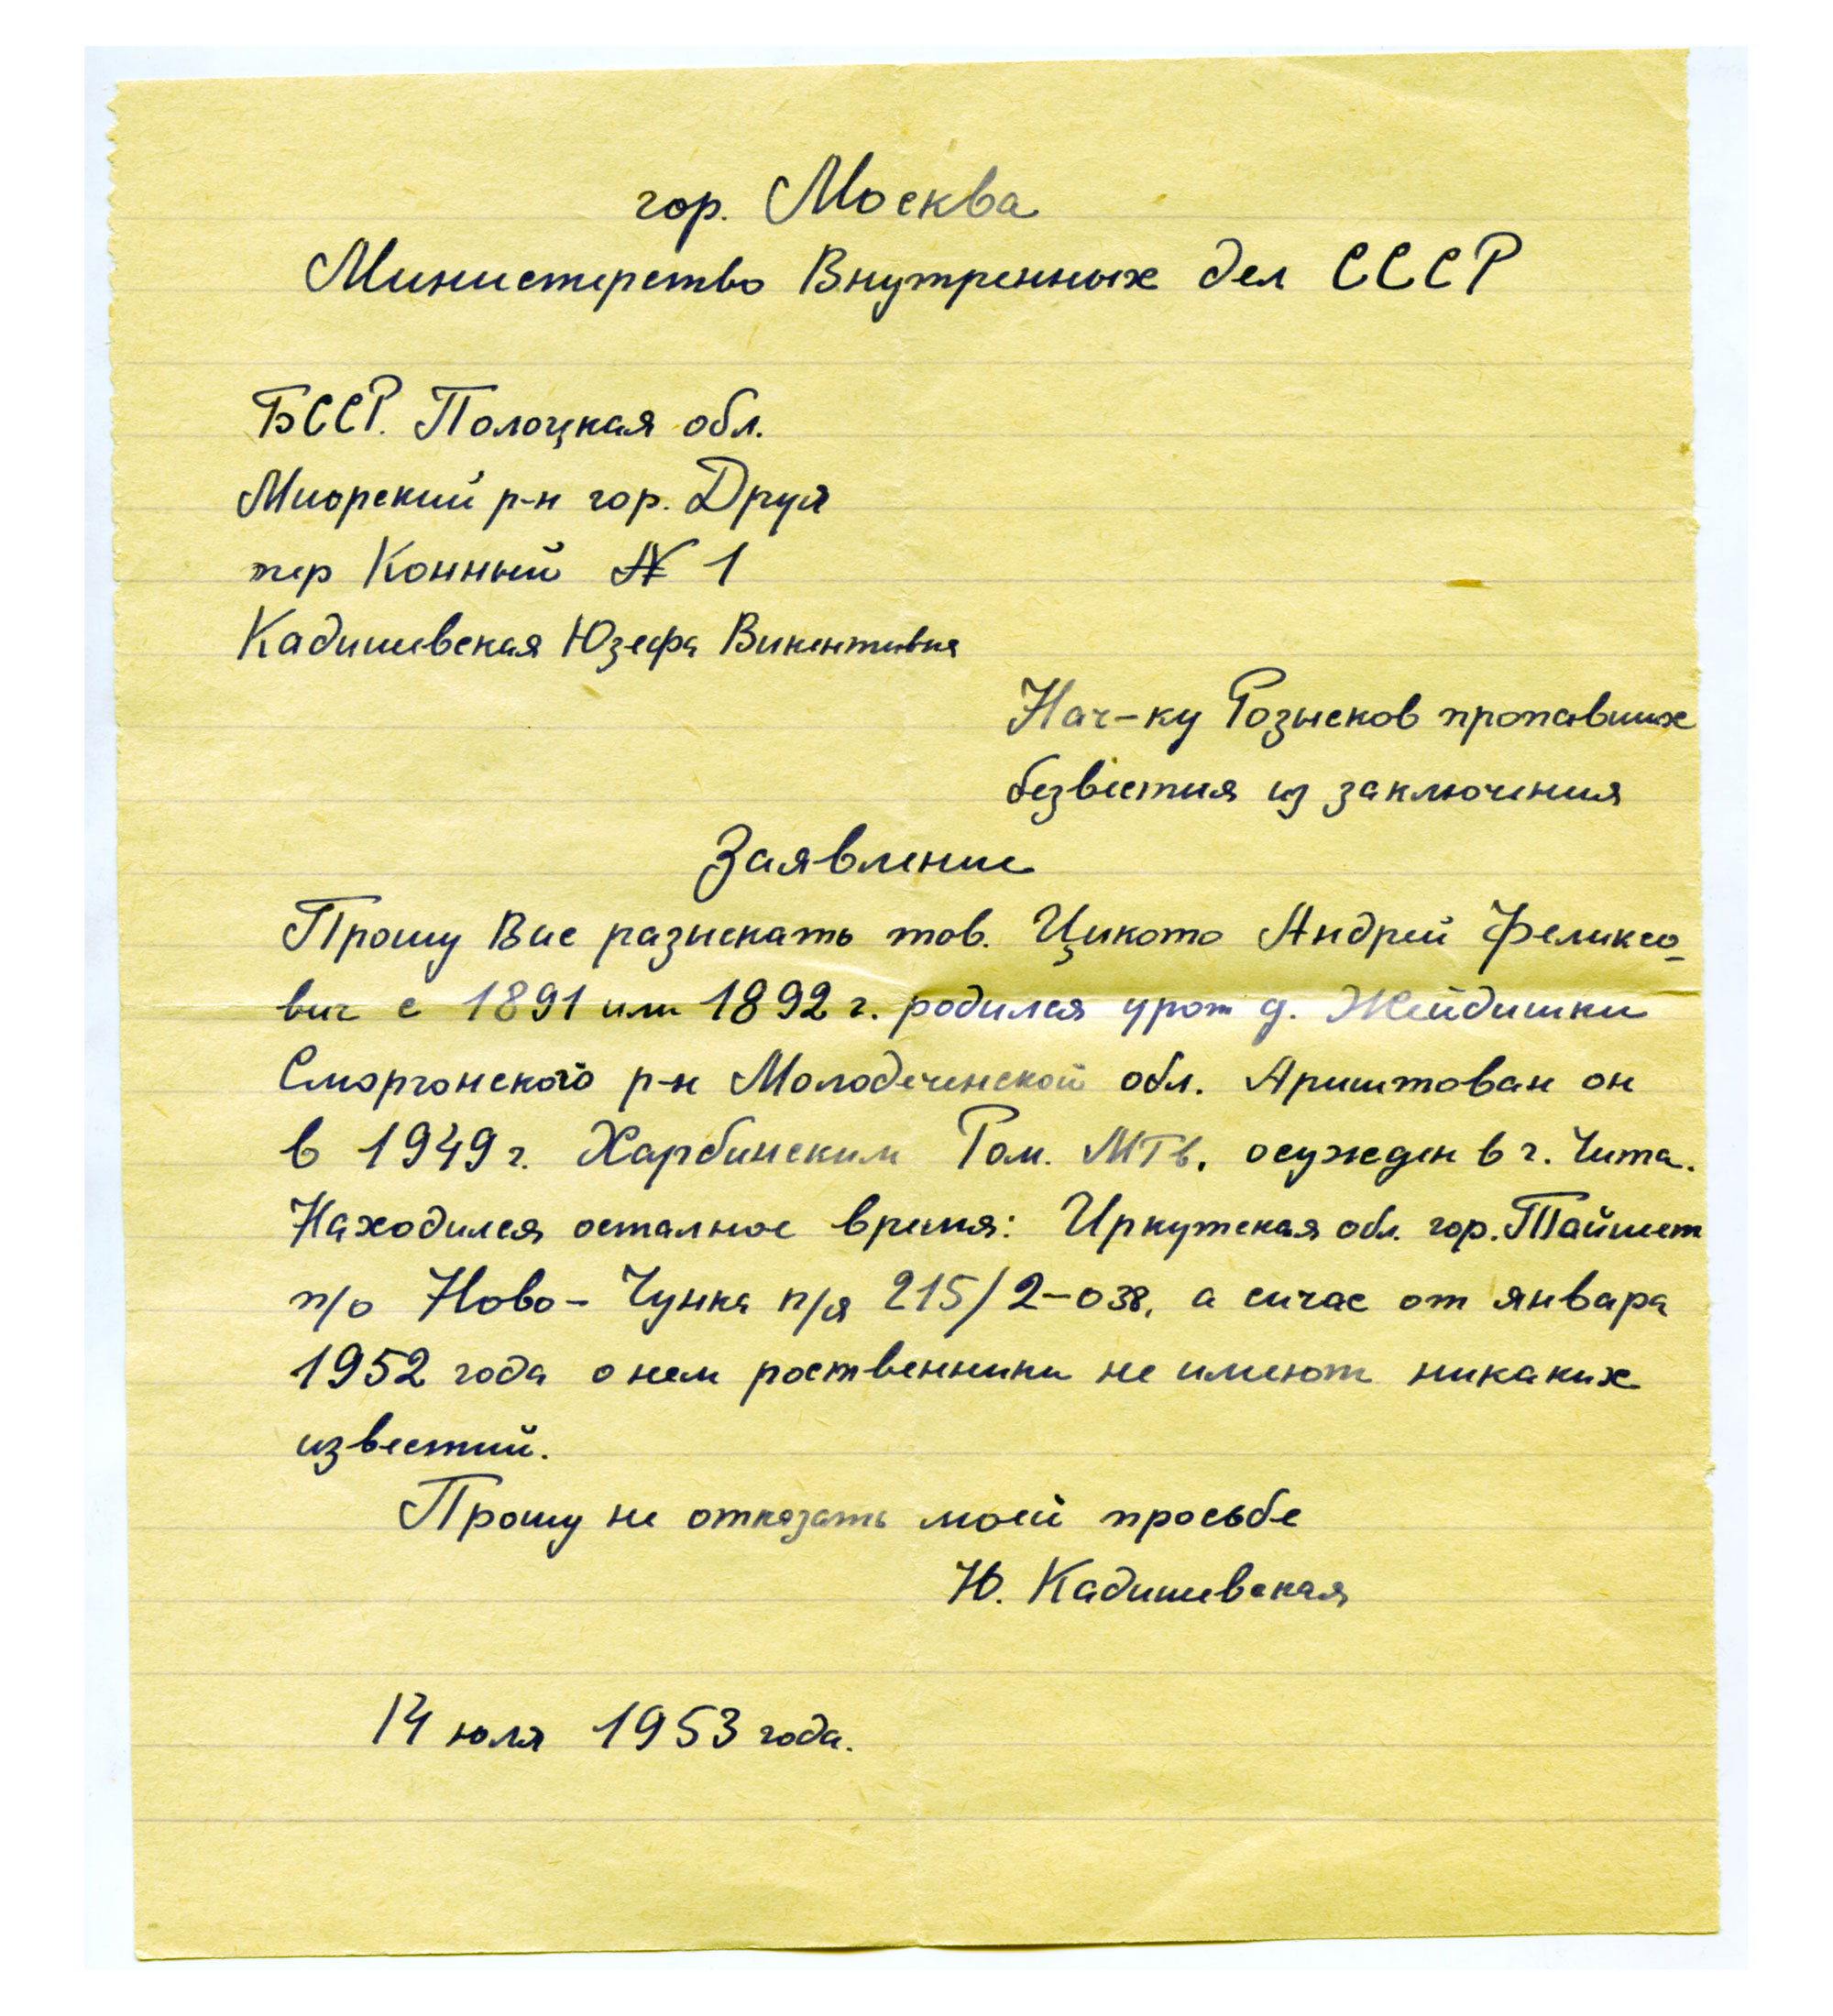 гор. Москва
Министерство Внутренных дел СССР
БССР. Полоцкая обл.
Миорский р-н гор. Друя
пер Конный № 1
Кадишевская Юзефа Викентивна
Нач-ку Розысков пропавших
безвестия из заключения
Заявление
Прошу Вас разыскать тов. Цикото Андрей Феликсо-
вич с 1891 или 1892 г. родился урож д. Жейдишки
Сморгонского р-н Молодеченской обл. Ариштован он
в 1949 г. Харбинским осужден в г. Чита.
Находился осталное время: Иркутская обл. гор. Тайшет
п/о Ново-Чунка п/я 215/2-038, а сичас от января
1952 года о нем роственники не имеют никаких
известий.
Прошу не отказать моей просьбе
Ю. Кадишевская
14 юля 1953 года.